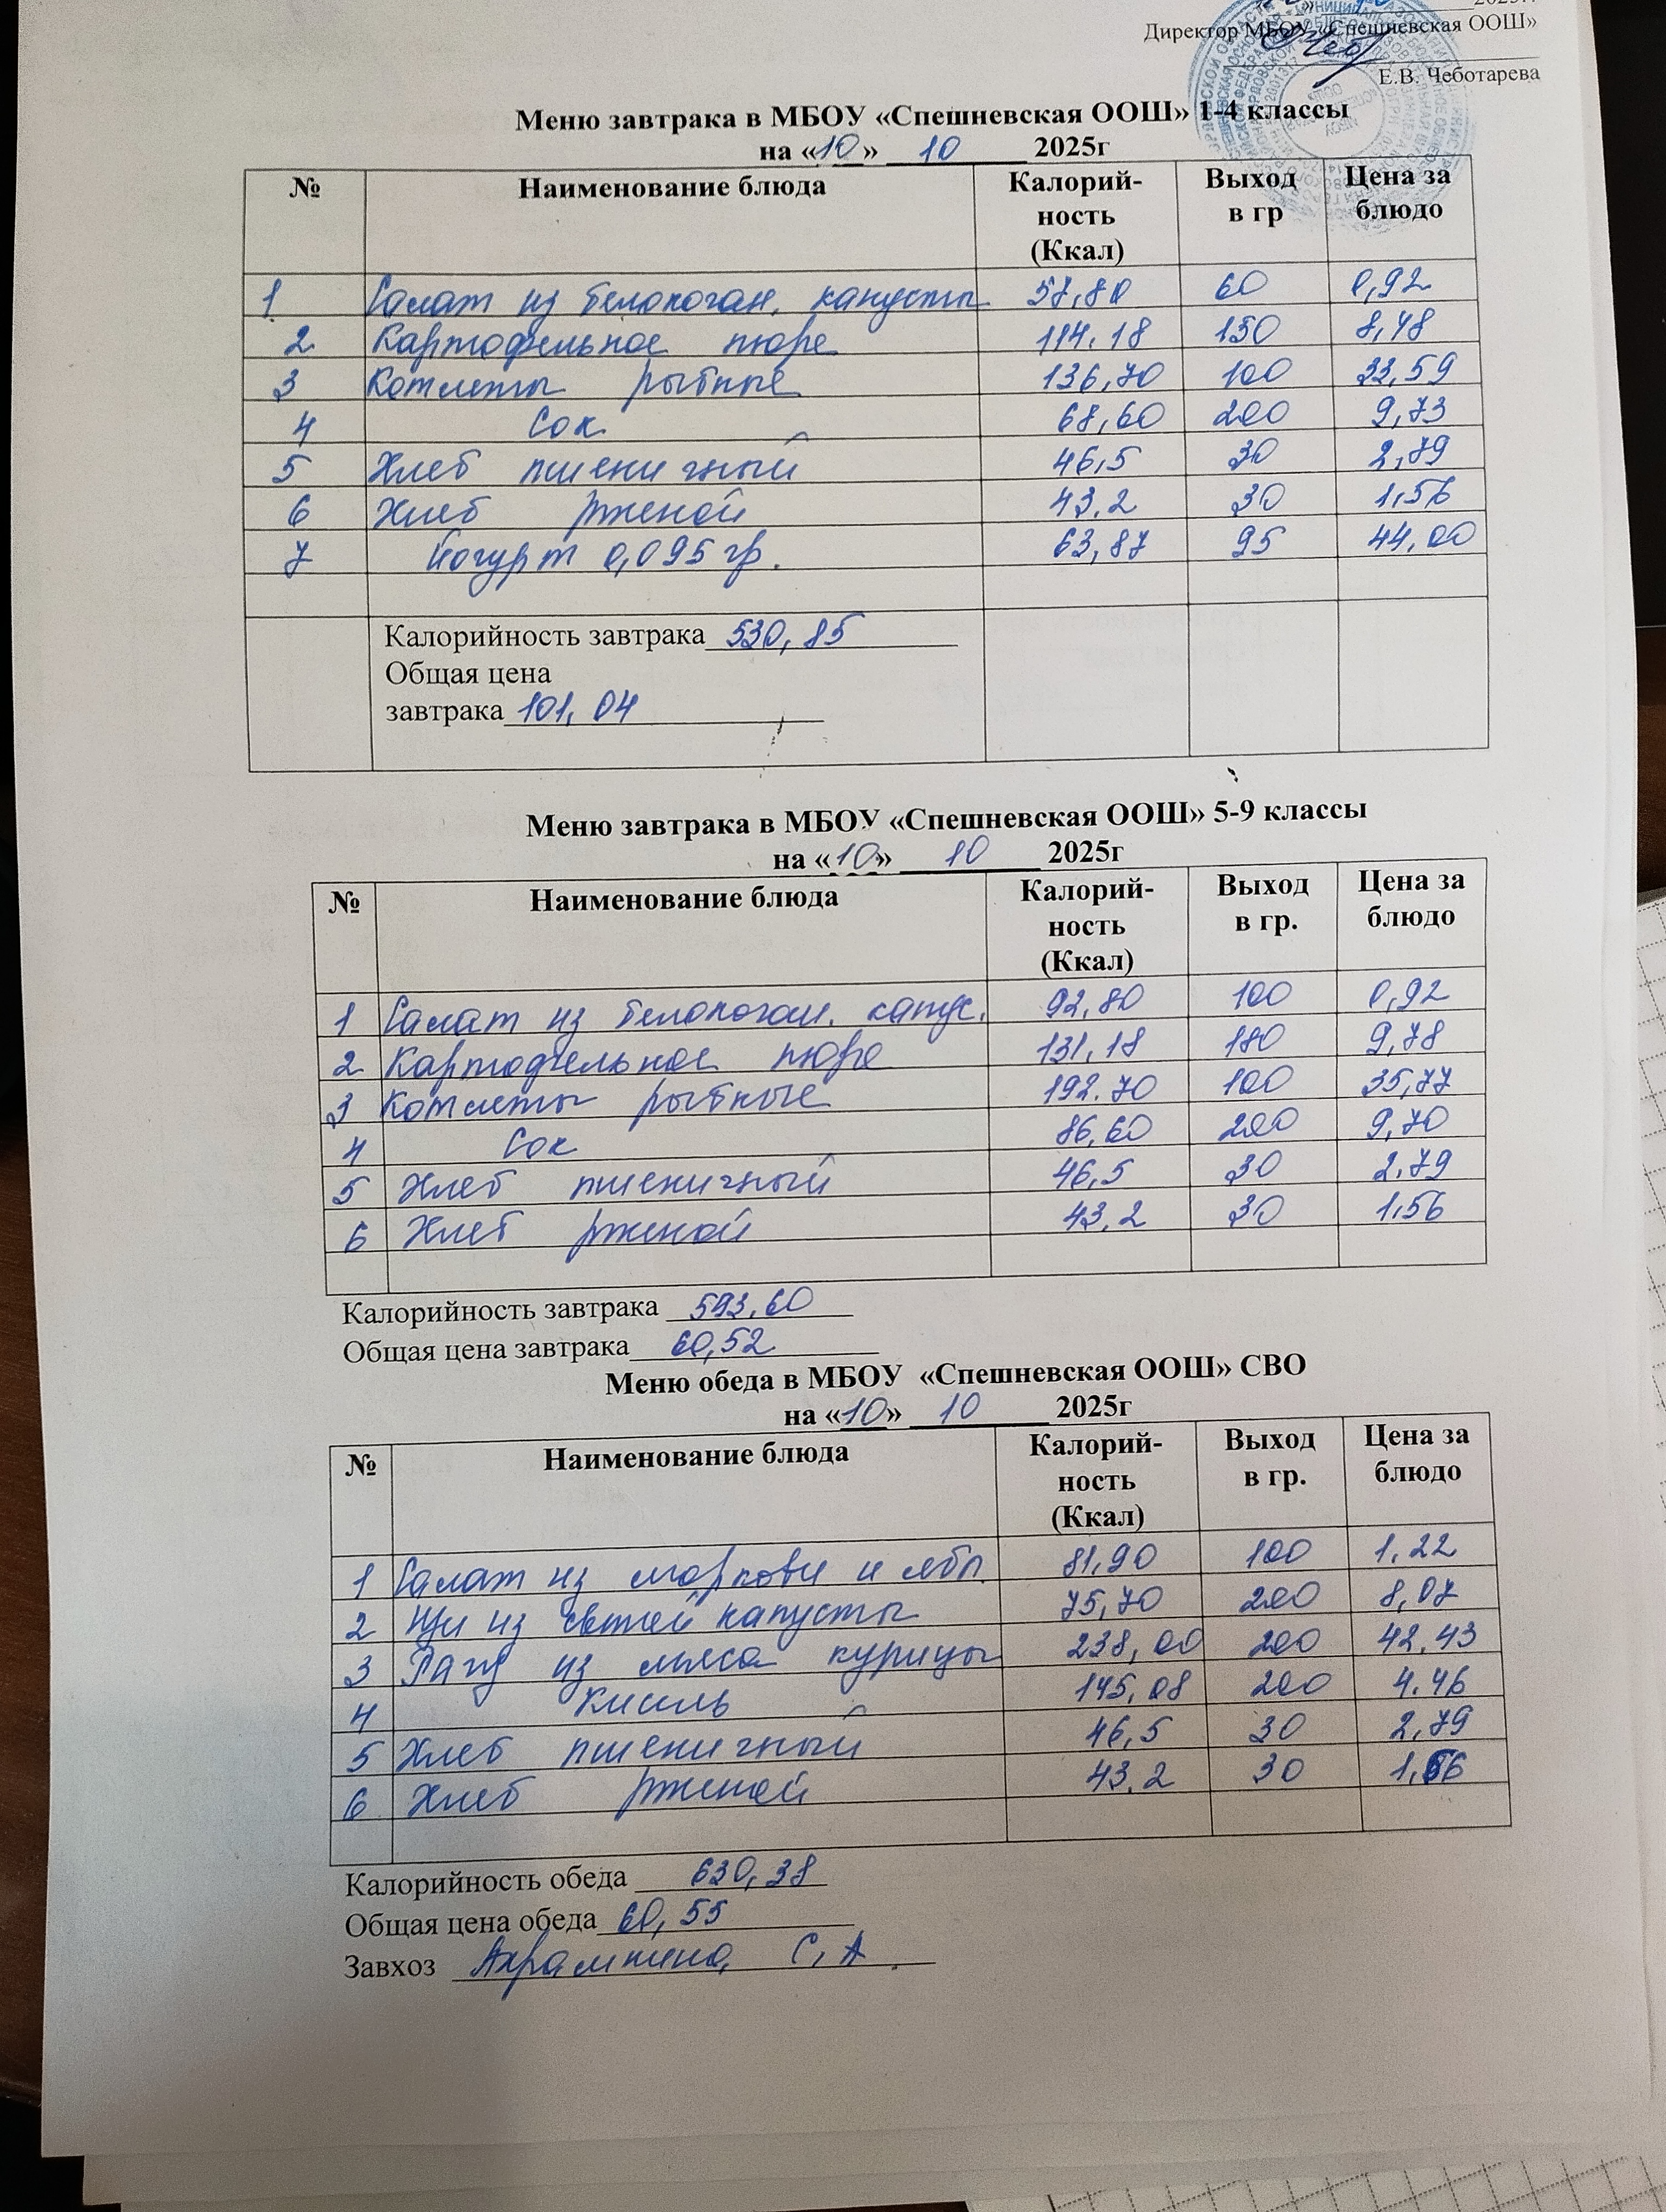 2025г.
Директор МБОУ «Спешневская ООШ»
Е.В. Чеботарева
Меню завтрака в МБОУ «Спешневская ООШ» 1-4 классы
на «10» 10 2025г
№ Наименование блюда Калорий-ность (Ккал) Выход в гр Цена за блюдо
1 Салат из белокочан. капусты 57,80 60 0,92
2 Картофельное пюре 114.18 150 8,48
3 Котлеты рыбные 136,70 100 33,59
4 Сок 68,60 200 9,73
5 Хлеб пшеничный 46,5 30 2,79
6 Хлеб ржаной 43.2 30 1,56
7 Йогурт 0,095 гр. 63,87 95 44,00
Калорийность завтрака 530,85
Общая цена
завтрака 101,04
Меню завтрака в МБОУ «Спешневская ООШ» 5-9 классы
на «10» 10 2025г
№ Наименование блюда Калорий-ность (Ккал) Выход в гр. Цена за блюдо
1 Салат из белокочан. капус. 92,80 100 0,92
2 Картофельное пюре 131,18 180 9,78
3 Котлеты рыбные 192.70 100 35,77
4 Сок 86,60 200 9,70
5 Хлеб пшеничный 46,5 30 2,79
6 Хлеб ржаной 43,2 30 1,56
Калорийность завтрака 593,60
Общая цена завтрака 60,52
Меню обеда в МБОУ «Спешневская ООШ» СВО
на «10» 10 2025г
№ Наименование блюда Калорий-ность (Ккал) Выход в гр. Цена за блюдо
1 Салат из моркови и ябл. 81,90 100 1.22
2 Щи из свежей капусты 75,70 200 8,07
3 Рагу из мяса курицы 238,00 200 42,43
4 Кисель 145,08 200 4.46
5 Хлеб пшеничный 46,5 30 2,79
6 Хлеб ржаной 43.2 30 1,56
Калорийность обеда 630,38
Общая цена обеда 60,55
Завхоз С,А